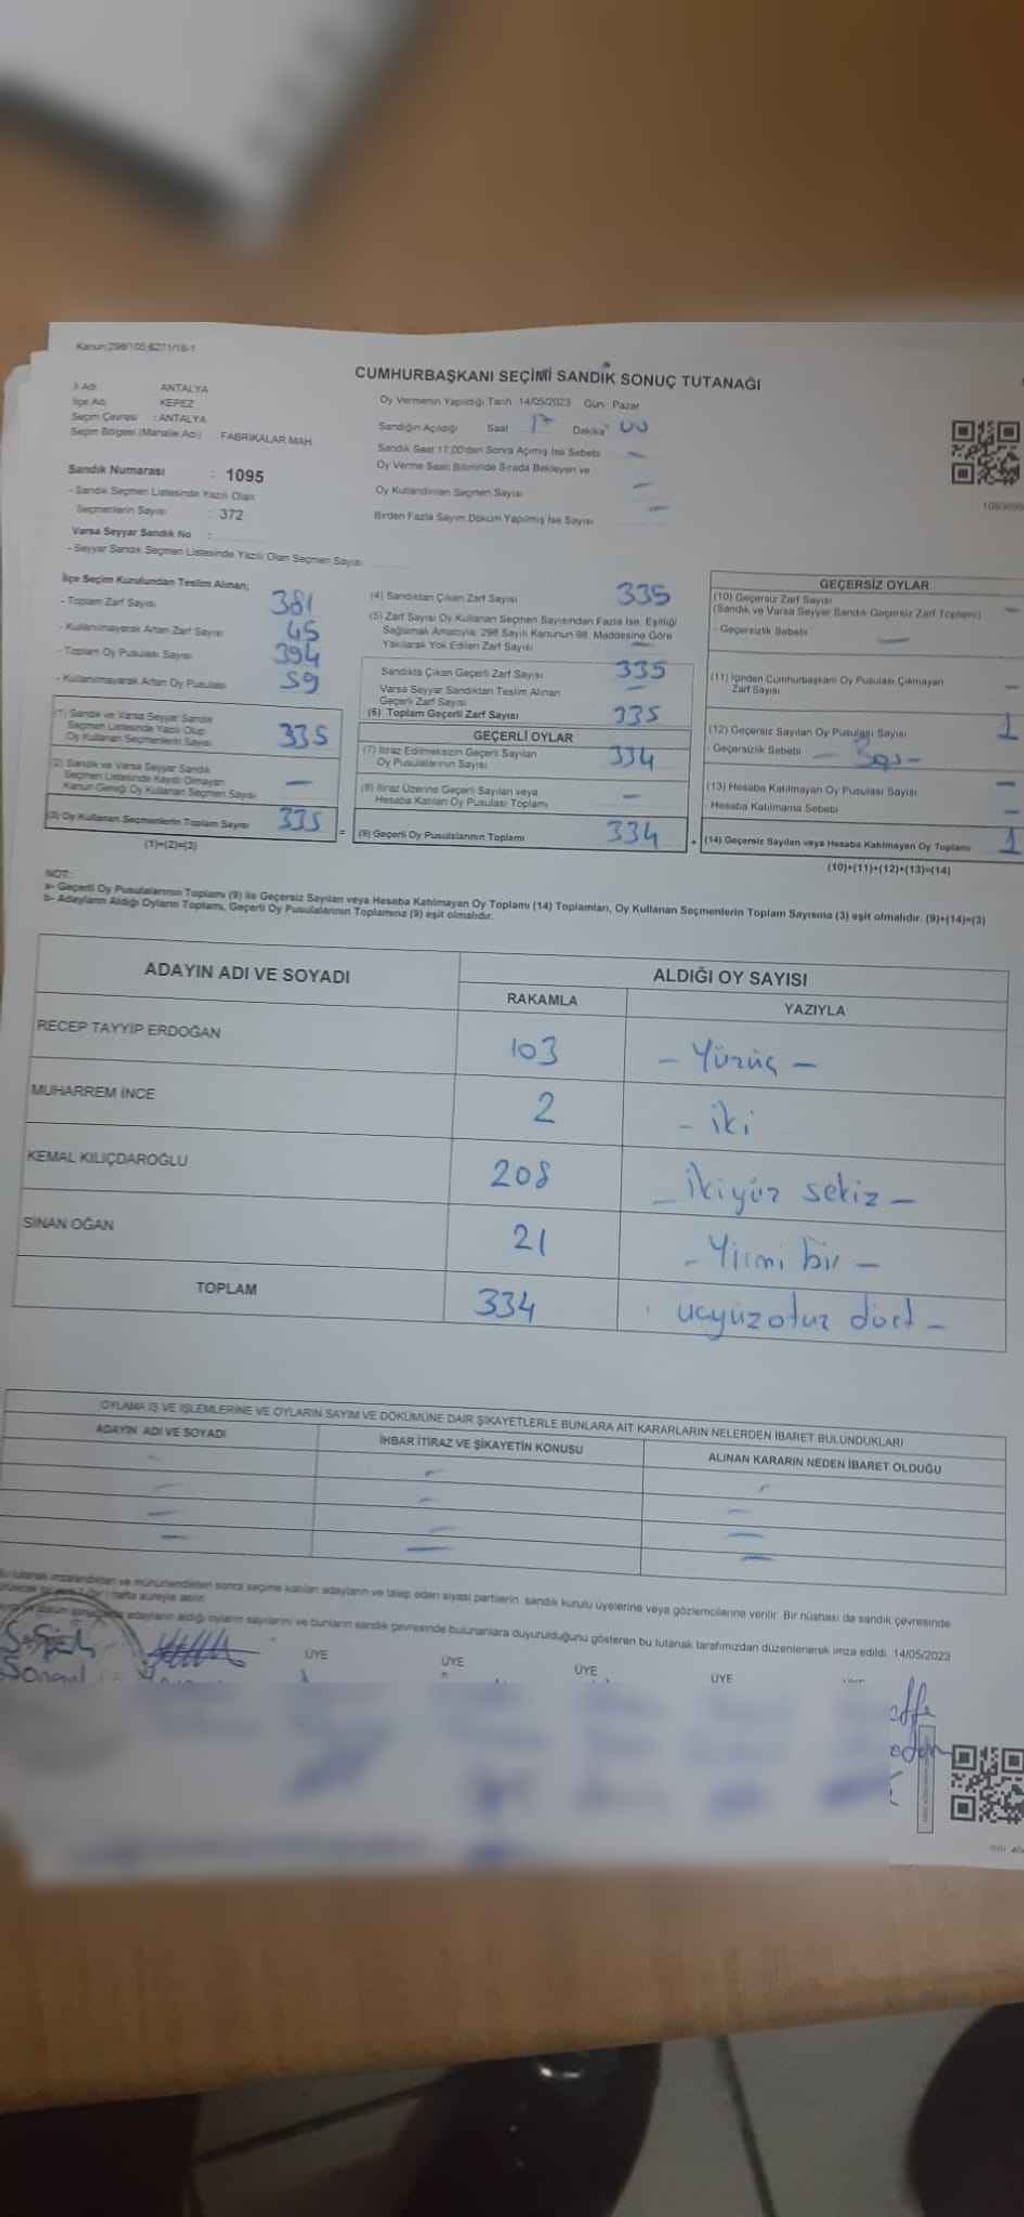 Kanun:298/105,6271/18-1
CUMHURBAŞKANI SEÇİMİ SANDIK SONUÇ TUTANAĞI
İl Adı ANTALYA
İlçe Adı KEPEZ
Seçim Çevresi : ANTALYA
Seçim Bölgesi (Mahalle Adı) FABRİKALAR MAH.
Oy Vermenin Yapıldığı Tarih 14/05/2023 Gün: Pazar
Sandığın Açıldığı Saat 17 Dakika 00
Sandık Saat 17.00'den Sonra Açılmış İse Sebebi —
Oy Verme Saati Bitiminde Sırada Bekleyen ve
Oy Kullandırılan Seçmen Sayısı —
Birden Fazla Sayım Döküm Yapılmış İse Sayısı —
Sandık Numarası : 1095
- Sandık Seçmen Listesinde Yazılı Olan
Seçmenlerin Sayısı : 372
Varsa Seyyar Sandık No :
- Seyyar Sandık Seçmen Listesinde Yazılı Olan Seçmen Sayısı
İlçe Seçim Kurulundan Teslim Alınan;
- Toplam Zarf Sayısı 381
- Kullanılmayarak Artan Zarf Sayısı 45
- Toplam Oy Pusulası Sayısı 394
- Kullanılmayarak Artan Oy Pusulası 59
(1) Sandık ve Varsa Seyyar Sandık
Seçmen Listesinde Yazılı Olup
Oy Kullanan Seçmenlerin Sayısı 335
(2) Sandık ve Varsa Seyyar Sandık
Seçmen Listesinde Kayıtlı Olmayan
Kanun Gereği Oy Kullanan Seçmen Sayısı —
(3) Oy Kullanan Seçmenlerin Toplam Sayısı 335
(1)+(2)=(3)
(4) Sandıktan Çıkan Zarf Sayısı 335
(5) Zarf Sayısı Oy Kullanan Seçmen Sayısından Fazla İse, Eşitliği
Sağlamak Amacıyla; 298 Sayılı Kanunun 98. Maddesine Göre
Yakılarak Yok Edilen Zarf Sayısı —
Sandıkta Çıkan Geçerli Zarf Sayısı 335
Varsa Seyyar Sandıktan Teslim Alınan
Geçerli Zarf Sayısı —
(6) Toplam Geçerli Zarf Sayısı 335
GEÇERLİ OYLAR
(7) İtiraz Edilmeksizin Geçerli Sayılan
Oy Pusulalarının Sayısı 334
(8) İtiraz Üzerine Geçerli Sayılan veya
Hesaba Katılan Oy Pusulası Toplamı —
(9) Geçerli Oy Pusulalarının Toplamı 334
GEÇERSİZ OYLAR
(10) Geçersiz Zarf Sayısı
(Sandık ve Varsa Seyyar Sandık Geçersiz Zarf Toplamı) —
- Geçersizlik Sebebi —
(11) İçinden Cumhurbaşkanı Oy Pusulası Çıkmayan
Zarf Sayısı —
(12) Geçersiz Sayılan Oy Pusulası Sayısı 1
- Geçersizlik Sebebi — Boş —
(13) Hesaba Katılmayan Oy Pusulası Sayısı —
Hesaba Katılmama Sebebi —
(14) Geçersiz Sayılan veya Hesaba Katılmayan Oy Toplamı 1
(10)+(11)+(12)+(13)=(14)
NOT:
a- Geçerli Oy Pusulalarının Toplamı (9) ile Geçersiz Sayılan veya Hesaba Katılmayan Oy Toplamı (14) Toplamları, Oy Kullanan Seçmenlerin Toplam Sayısına (3) eşit olmalıdır. (9)+(14)=(3)
b- Adayların Aldığı Oyların Toplamı, Geçerli Oy Pusulalarının Toplamına (9) eşit olmalıdır.
ADAYIN ADI VE SOYADI ALDIĞI OY SAYISI
RAKAMLA YAZIYLA
RECEP TAYYİP ERDOĞAN 103 — Yüzüç —
MUHARREM İNCE 2 - iki
KEMAL KILIÇDAROĞLU 208 — ikiyüz sekiz —
SİNAN OĞAN 21 - Yirmi bir —
TOPLAM 334 üçyüzotuz dört —
OYLAMA İŞ VE İŞLEMLERİNE VE OYLARIN SAYIM VE DÖKÜMÜNE DAİR ŞİKAYETLERLE BUNLARA AİT KARARLARIN NELERDEN İBARET BULUNDUKLARI
ADAYIN ADI VE SOYADI İHBAR İTİRAZ VE ŞİKAYETİN KONUSU ALINAN KARARIN NEDEN İBARET OLDUĞU
imzalandıktan ve mühürlendikten sonra seçime katılan adayların ve talep eden siyasi partilerin sandık kurulu üyelerine veya gözlemcilerine verilir. Bir nüshası da sandık çevresinde
hafta süreyle asılır.
adayların aldığı oyların sayılarını ve bunların sandık çevresinde bulunanlara duyurulduğunu gösteren bu tutanak tarafımızdan düzenlenerek imza edildi. 14/05/2023
ÜYE ÜYE ÜYE ÜYE